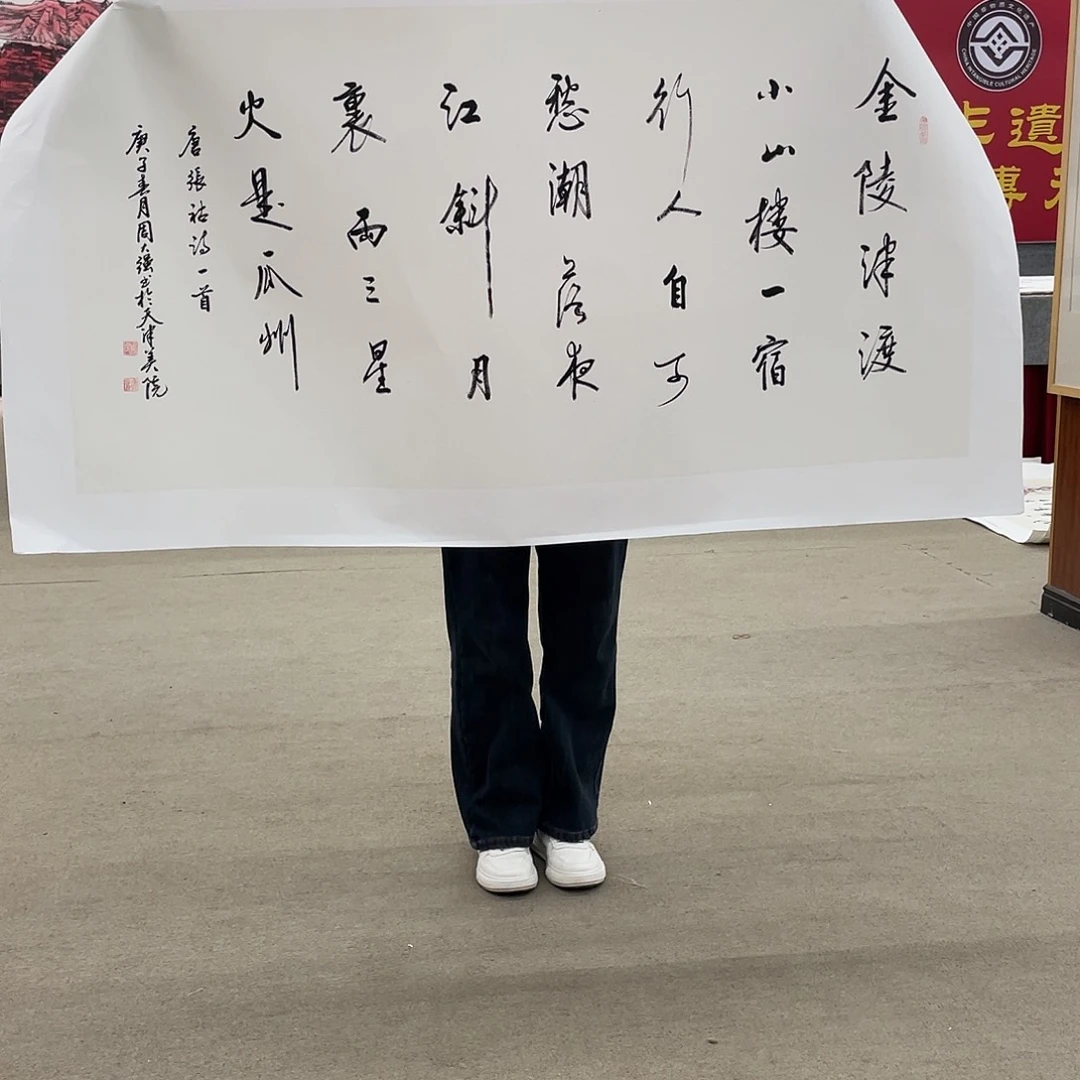 金陵津渡
小山楼一宿
行人自可
愁潮落夜
江斜月
裏两三星
火是瓜州
唐张祜诗一首
庚子春月周大强书於天津美院
中国非物质文化遗产
CHINA INTANGIBLE CULTURAL HERITAGE
遺